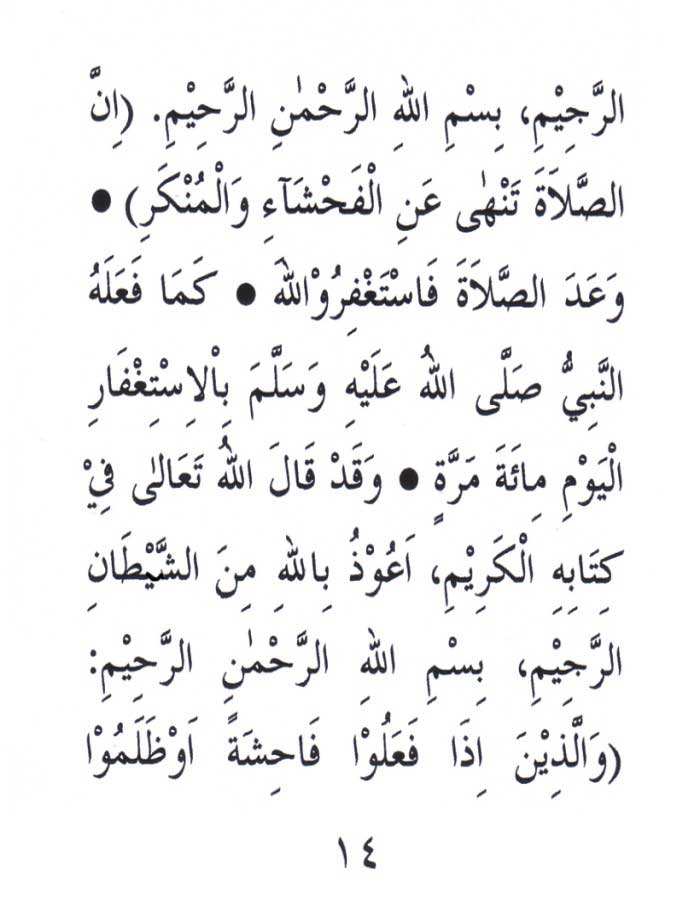 الرَّجِيْمِ، بِسْمِ اللهِ الرَّحْمٰنِ الرَّحِيْمِ. (اِنَّ
الصَّلَاةَ تَنْهٰى عَنِ الْفَحْشَآءِ وَالْمُنْكَرِ) ●
وَعَدَ الصَّلَاةَ فَاسْتَغْفِرُوْاللهَ ● كَمَا فَعَلَهُ
النَّبِيُّ صَلَّى اللهُ عَلَيْهِ وَسَلَّمَ بِاْلاِسْتِغْفَارِ
الْيَوْمِ مِائَةَ مَرَّةٍ ● وَقَدْ قَالَ اللهُ تَعَالٰى فِيْ
كِتَابِهِ الْكَرِيْمِ، اَعُوْذُ بِاللهِ مِنَ الشَّيْطَانِ
الرَّجِيْمِ، بِسْمِ اللهِ الرَّحْمٰنِ الرَّحِيْمِ:
(وَالَّذِيْنَ اِذَا فَعَلُوْا فَاحِشَةً اَوْظَلَمُوْا
١٤